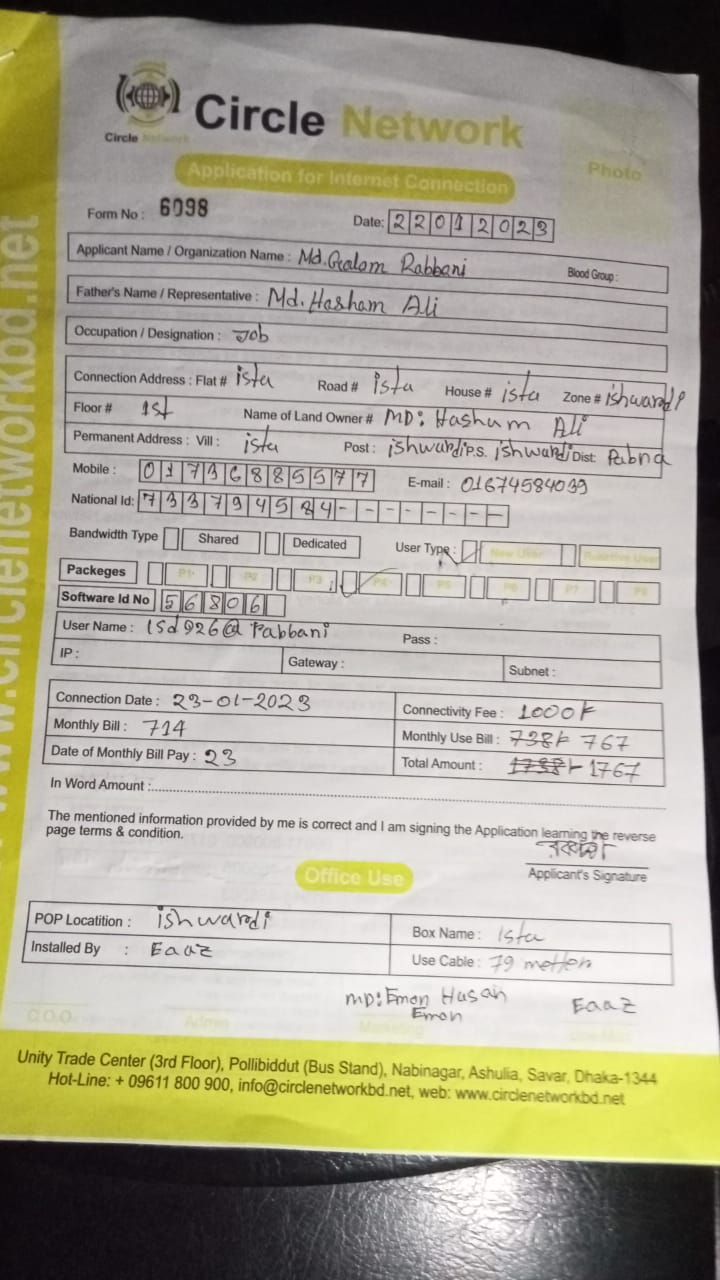 Circle Network
Circle Network
Application for Internet Connection
Photo
Form No : 6098
Date: 22012023
Applicant Name / Organization Name : Md. Golam Rabbani Blood Group :
Father's Name / Representative : Md. Hasham Ali
Occupation / Designation : Job
Connection Address : Flat # ista Road # ista House # ista Zone # ishwardi
Floor # 1st Name of Land Owner # MD: Hashum Ali
Permanent Address : Vill : ista Post : ishwardi P.S. ishwardi Dist: Pabna
Mobile : 01736885577 E-mail : 01674584039
National Id: 733794584-------
Bandwidth Type Shared Dedicated User Type: New User
Packeges P1 P2 P3 P4 P5 P6 P7 P8
Software Id No 56806
User Name : isd926@rabbani Pass :
IP : Gateway : Subnet :
Connection Date : 23-01-2023 Connectivity Fee : 1000/-
Monthly Bill : 714 Monthly Use Bill : 738/- 767
Date of Monthly Bill Pay : 23 Total Amount : 1738/- 1767
In Word Amount :
The mentioned information provided by me is correct and I am signing the Application learning the reverse
page terms & condition.
Applicant's Signature
Office Use
POP Locatition : ishwardi Box Name : Ista
Installed By : Eaaz Use Cable : 79 metter
MD: Emon Husan Eaaz
Emon
C.O.O. Admin Marketing
Unity Trade Center (3rd Floor), Pollibiddut (Bus Stand), Nabinagar, Ashulia, Savar, Dhaka-1344
Hot-Line: + 09611 800 900, info@circlenetworkbd.net, web: www.circlenetworkbd.net
www.circlenetworkbd.net